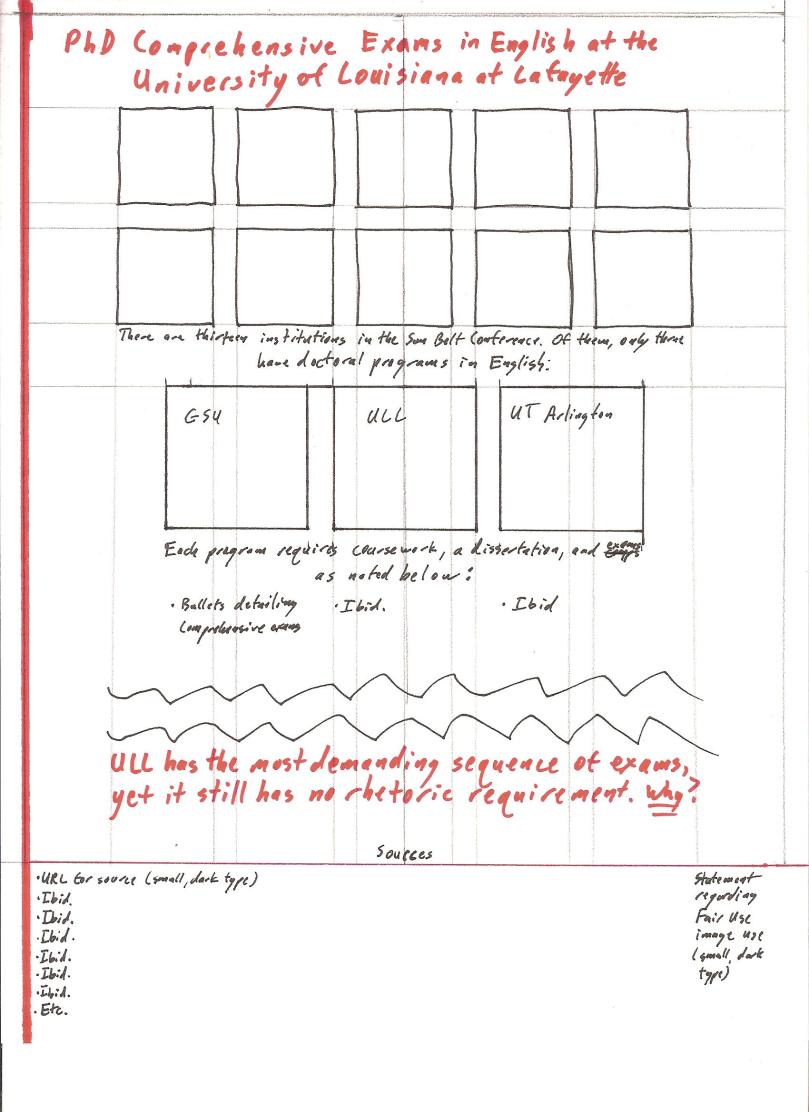 PhD Comprehensive Exams in English at the
University of Louisiana at Lafayette
There are thirteen institutions in the Sun Belt Conference. Of them, only three
have doctoral programs in English:
GSU
ULL
UT Arlington
Each program requires coursework, a dissertation, and exams
as noted below:
• Bullets detailing
comprehensive exams
• Ibid.
• Ibid
ULL has the most demanding sequence of exams,
yet it still has no rhetoric requirement. Why?
Sources
• URL for source (small, dark type)
• Ibid.
• Ibid.
• Ibid.
• Ibid.
• Ibid.
• Ibid.
• Etc.
Statement
regarding
Fair Use
image use
(small, dark
type)